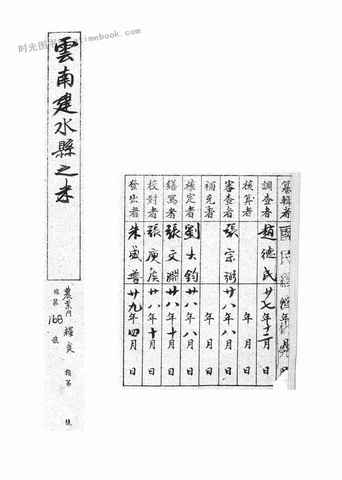 时光图书 timebook.com
雲南建水縣之米
農業門 糧食 類第 號
168
纂輯者 國民經濟 年 月
調查者 趙德民 廿七年十二月 日
核算者 年 月 日
審查者 張宗弼 廿八年八月 日
補充者 年 月 日
核定者 劉大鈞 廿八年八月 日
繕寫者 張文淵 廿八年十月 日
校對者 張庚庚 廿八年十月 日
發出者 朱盛普 廿九年四月 日